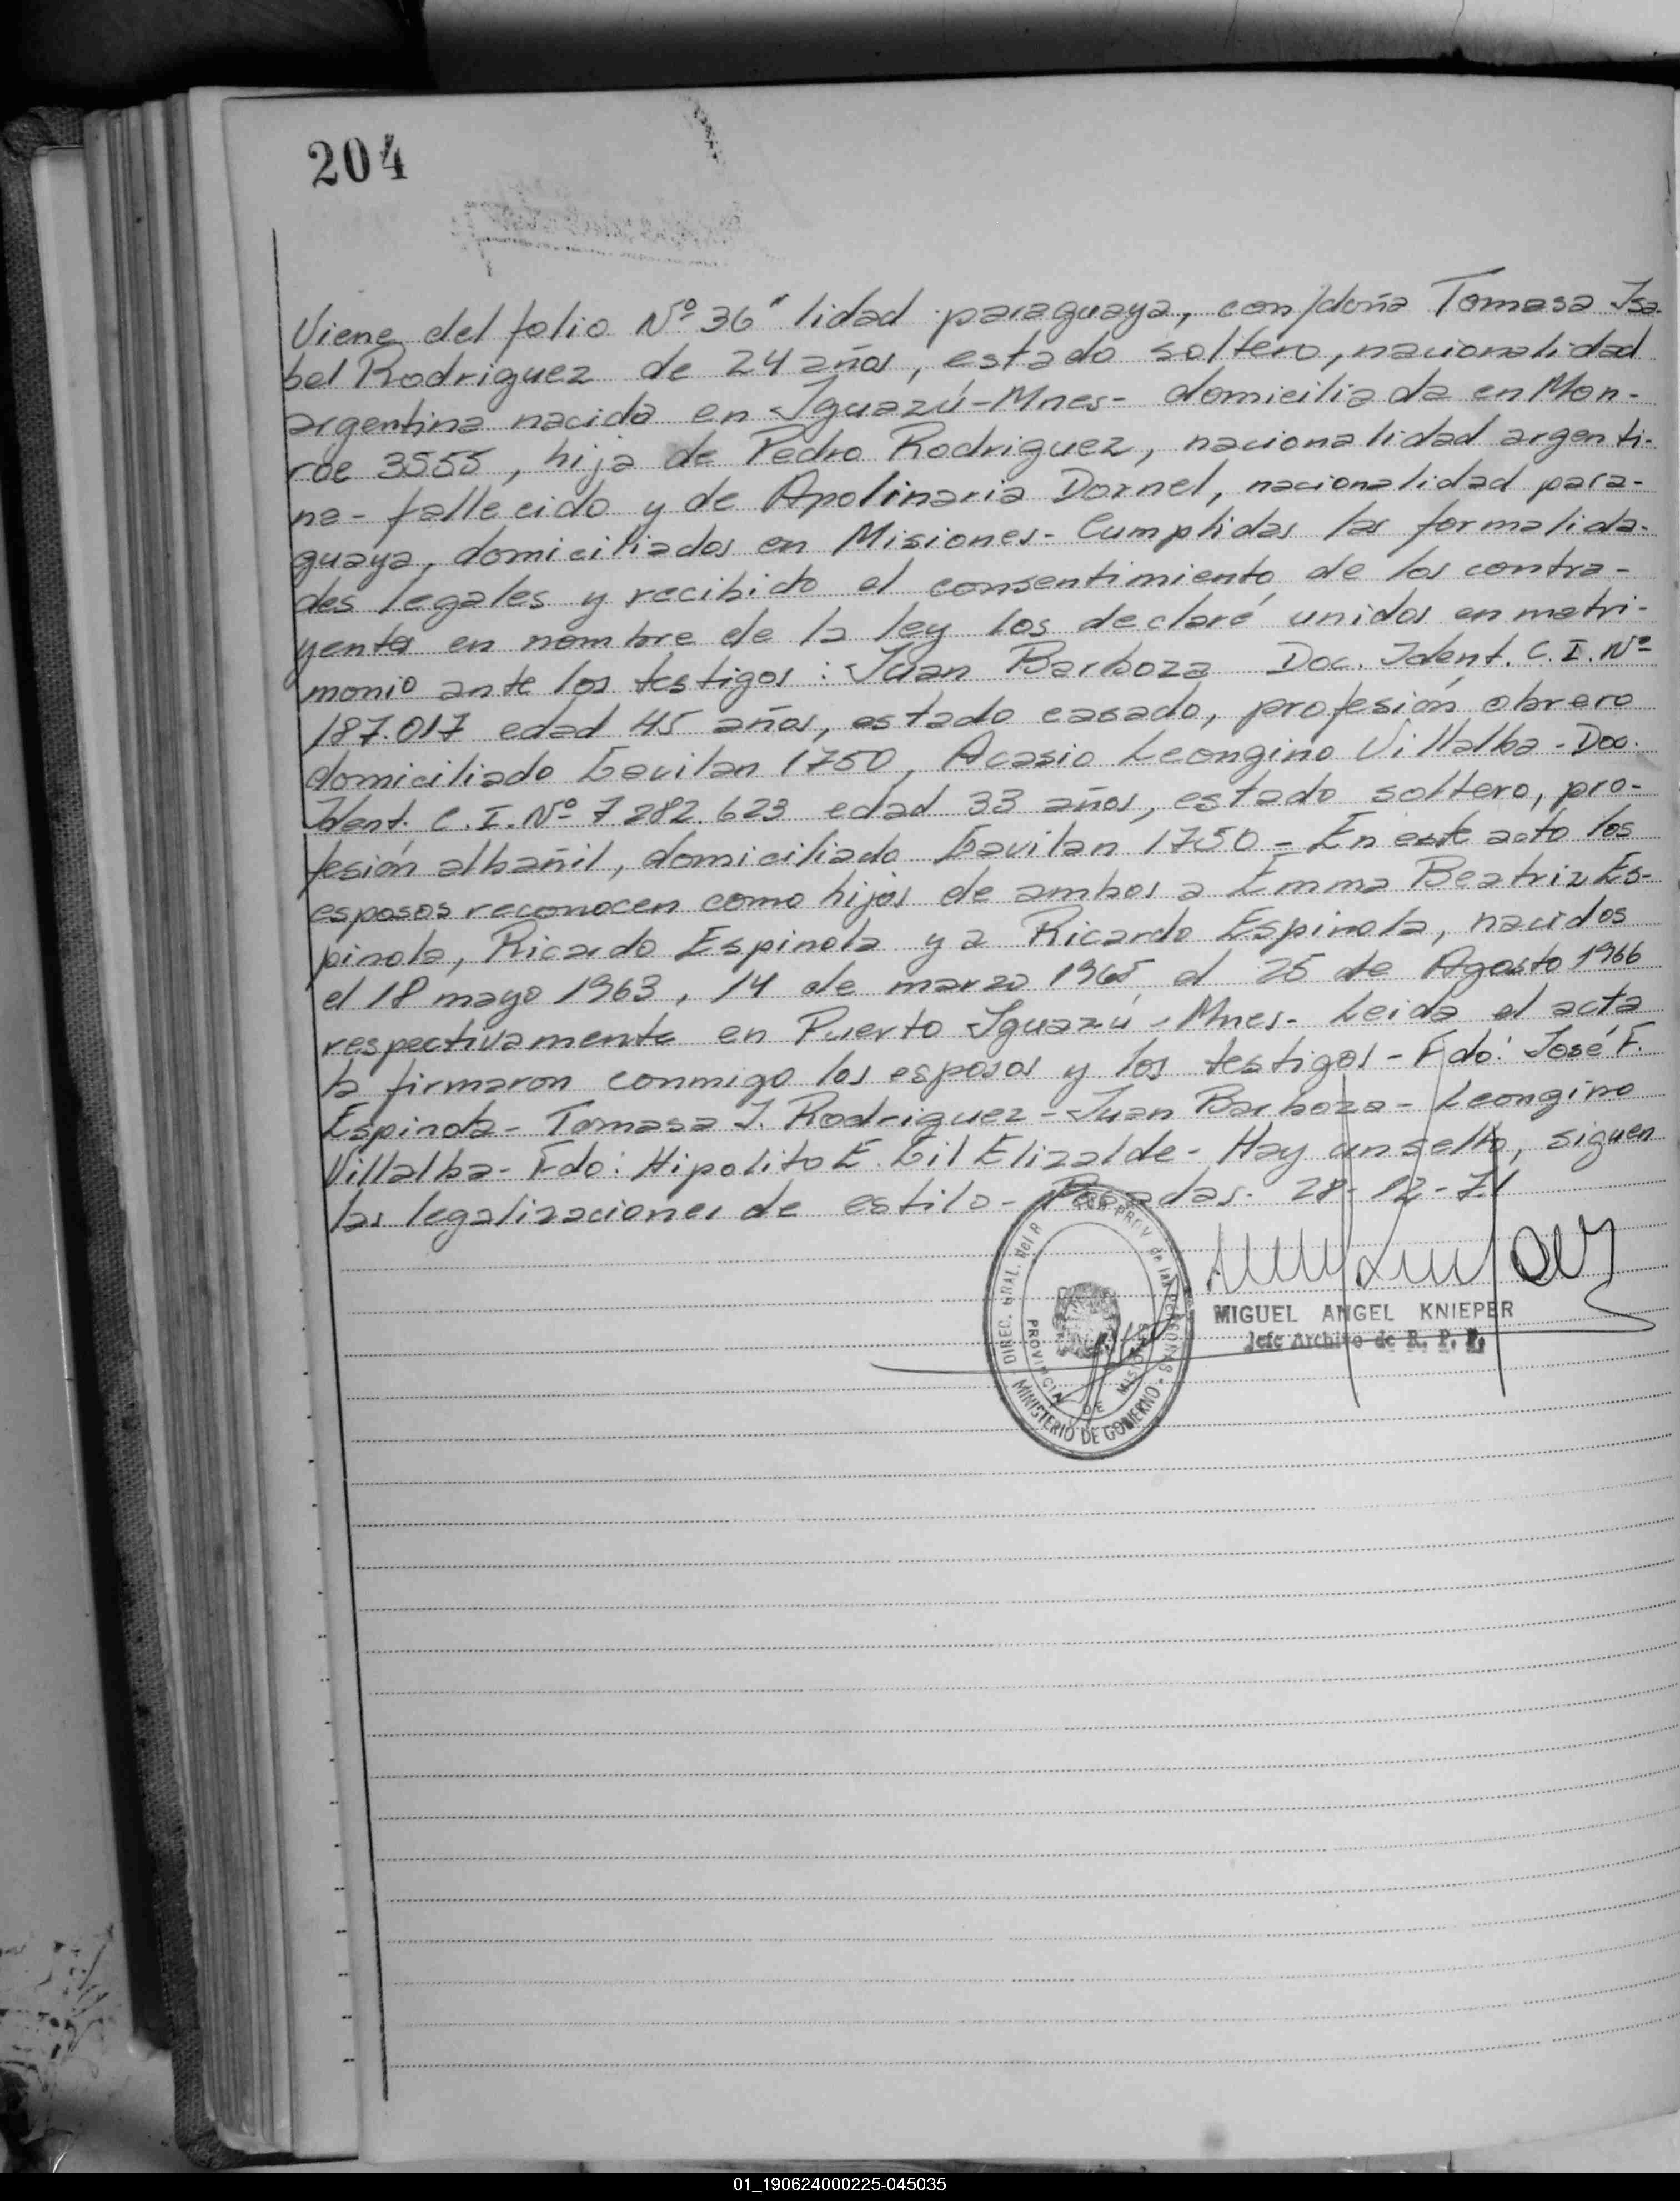 204
Viene del folio Nº 36" lidad paraguaya, con/doña Tomasa Isa-
bel Rodriguez de 24 años, estado soltero, nacionalidad
argentina nacida en Iguazú-Mnes- domiciliada en Mon-
roe 3555, hija de Pedro Rodriguez, nacionalidad argenti-
na- fallecido y de Apolinaria Dornel, nacionalidad para-
guaya, domiciliados en Misiones- Cumplidas las formalida-
des legales y recibido el consentimiento de los contra-
yentes en nombre de la ley los declaré unidos en matri-
monio ante los testigos: Juan Barboza Doc. Ident. C.I. Nº
187.017 edad 45 años, estado casado, profesión obrero
domiciliado Gavilan 1750, Acasio Leongino Villalba- Doc.
Ident. C.I. Nº 7282.623 edad 33 años, estado soltero, pro-
fesión albañil, domiciliado Gavilan 1750 - En este acto los
esposos reconocen como hijos de ambos a Emma Beatriz Es-
pinola, Ricardo Espinola y a Ricardo Espinola, nacidos
el 18 mayo 1963, 14 de marzo 1965, el 25 de Agosto 1966
respectivamente en Puerto Iguazú - Mnes- Leida el acta
la firmaron conmigo los esposos y los testigos - Fdo: José F.
Espinola- Tomasa I. Rodriguez - Juan Barboza - Leongino
Villalba- Fdo: Hipolito E. Gil Elizalde- Hay un sello, siguen
las legalizaciones de estilo- Posadas- 28-12-71
DIREC. GRAL. del R PROV de las PERSONAS
PROVINCIA DE MISIONES
MINISTERIO DE GOBIERNO
MIGUEL ANGEL KNIEPER
Jefe Archivo de R. P. P.
01_190624000225-045035